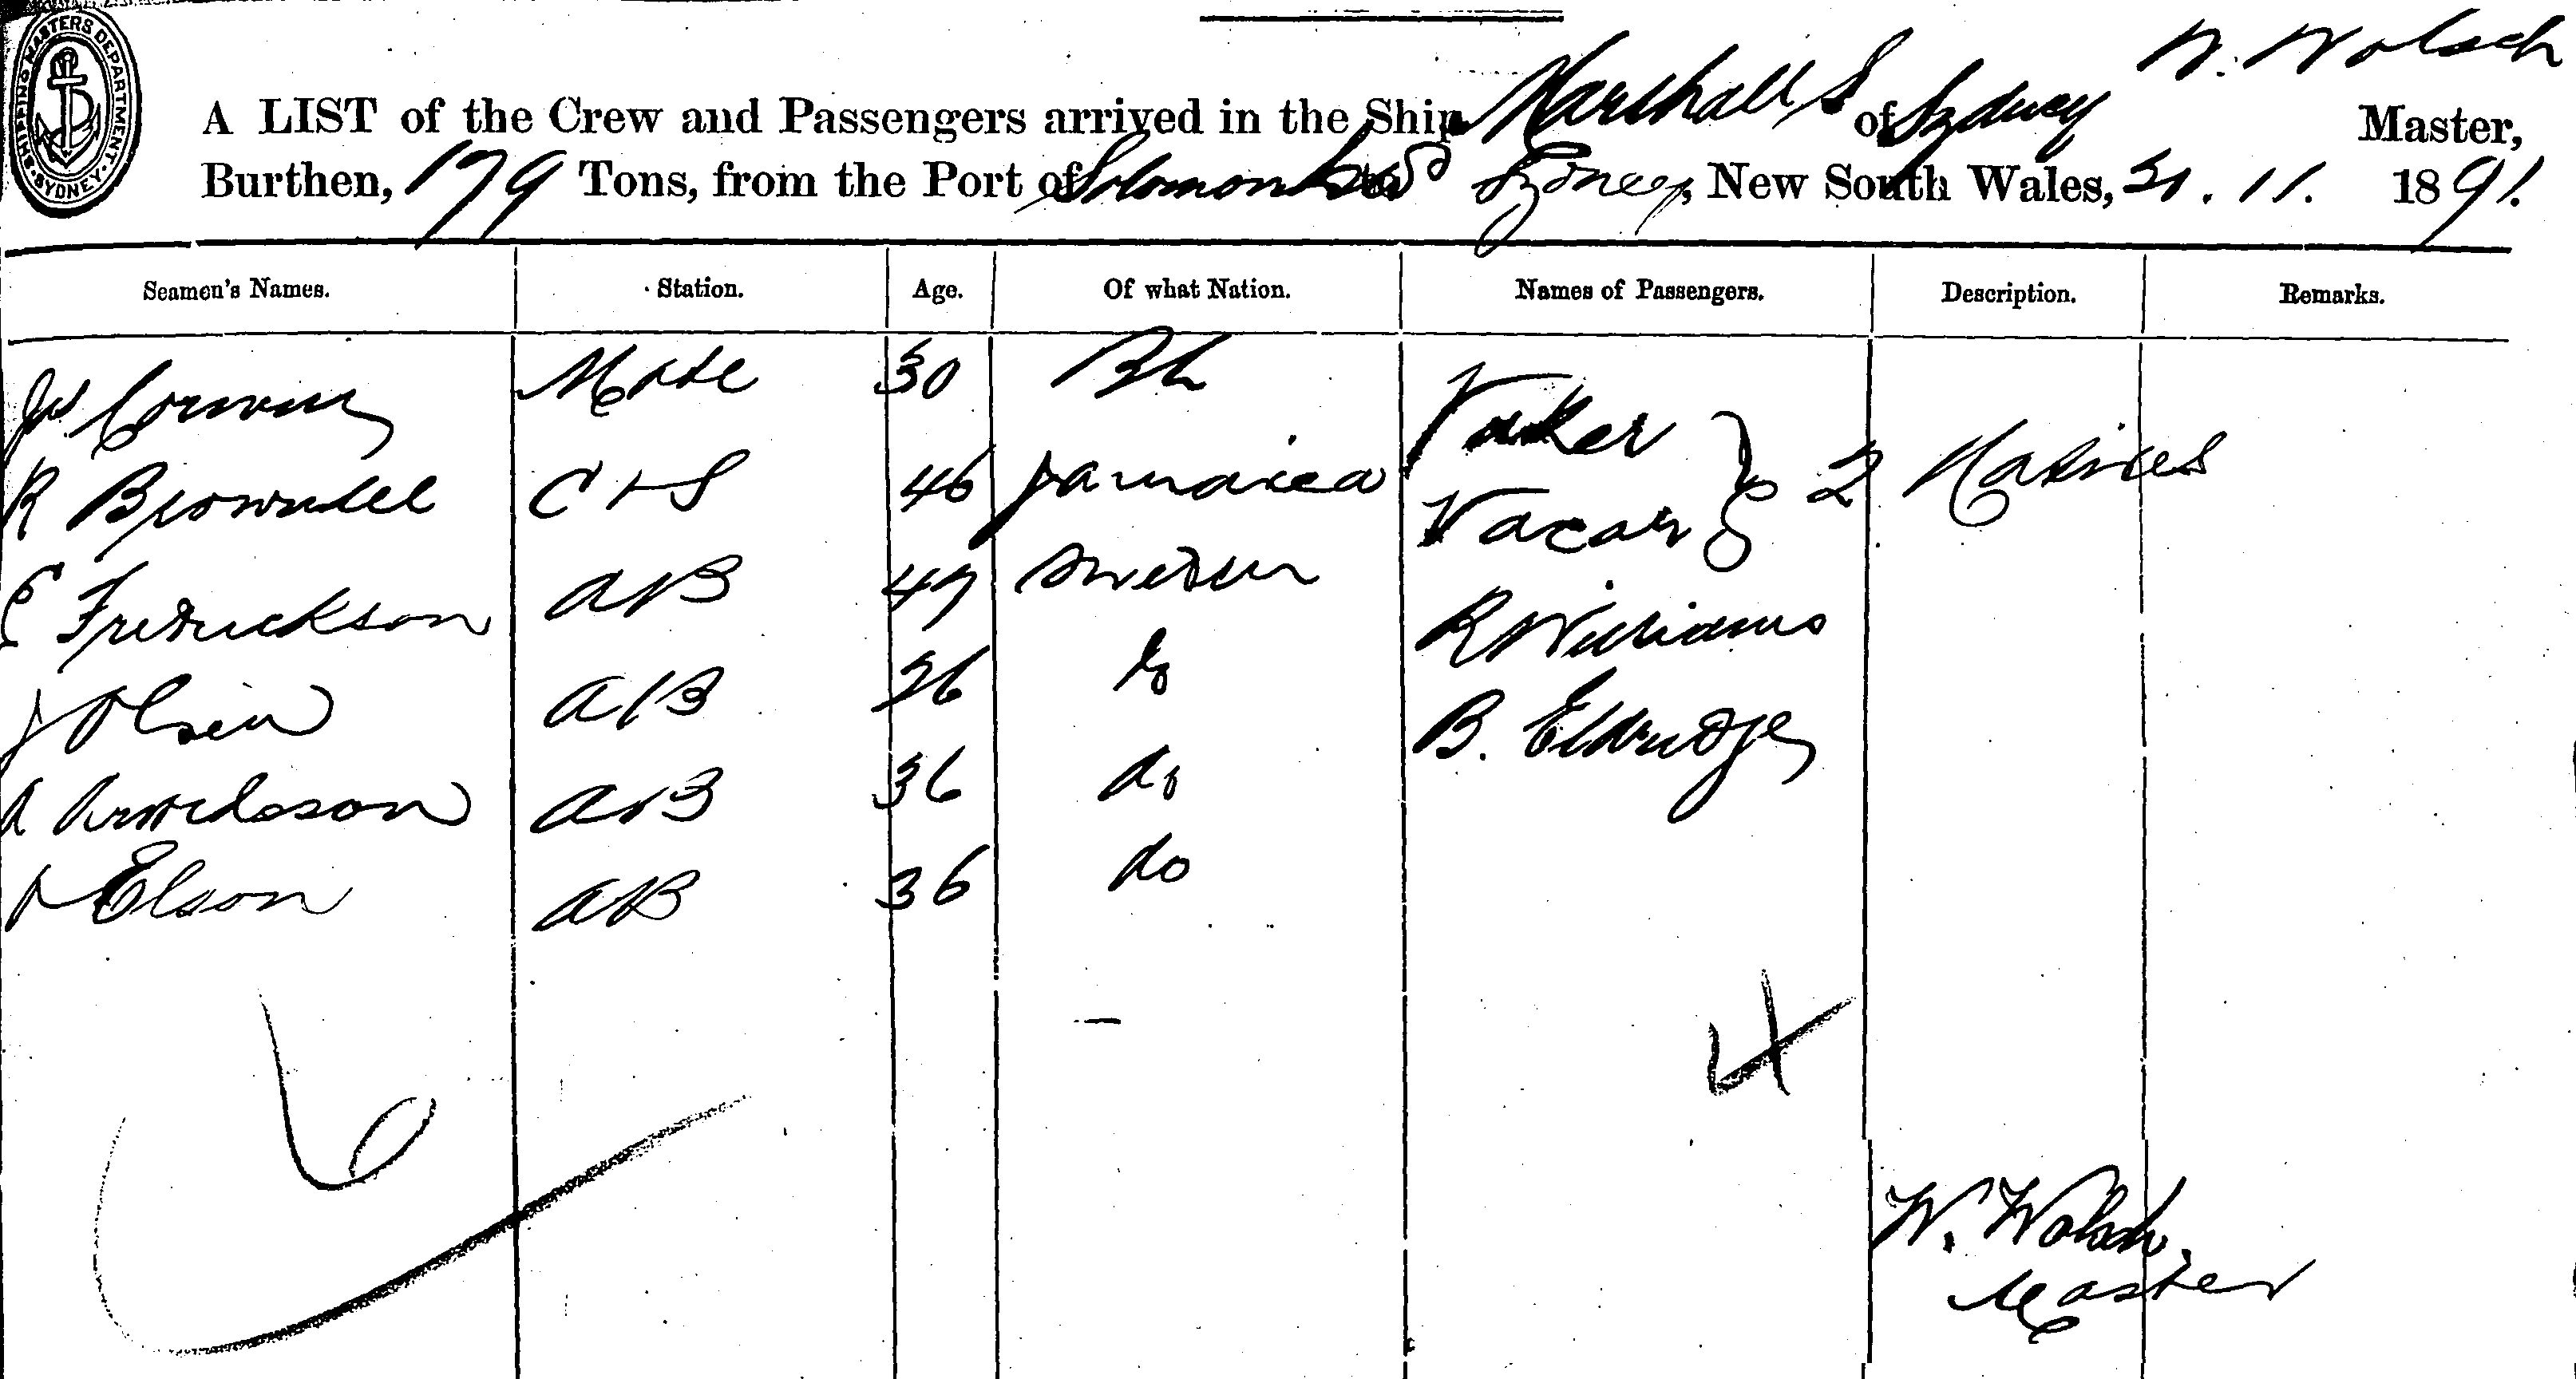 SHIPPING MASTERS DEPARTMENT. SYDNEY.
W. Wolsch
A LIST of the Crew and Passengers arrived in the Ship Marshall S of Sydney Master,
Burthen, 179 Tons, from the Port of Solomon Sydney, New South Wales, 11. 1891.
Seamen's Names. Station. Age. Of what Nation. Names of Passengers. Description. Remarks.
Mate 30
R C & S 46 Jamaica Vacar 2 Natives
E Fredrickson AB 47 Sweden R Williams
J Olsen AB do B. Eldridge
AB 36 do
Elson AB 36 do
6 4
W. Wolsch.
Master